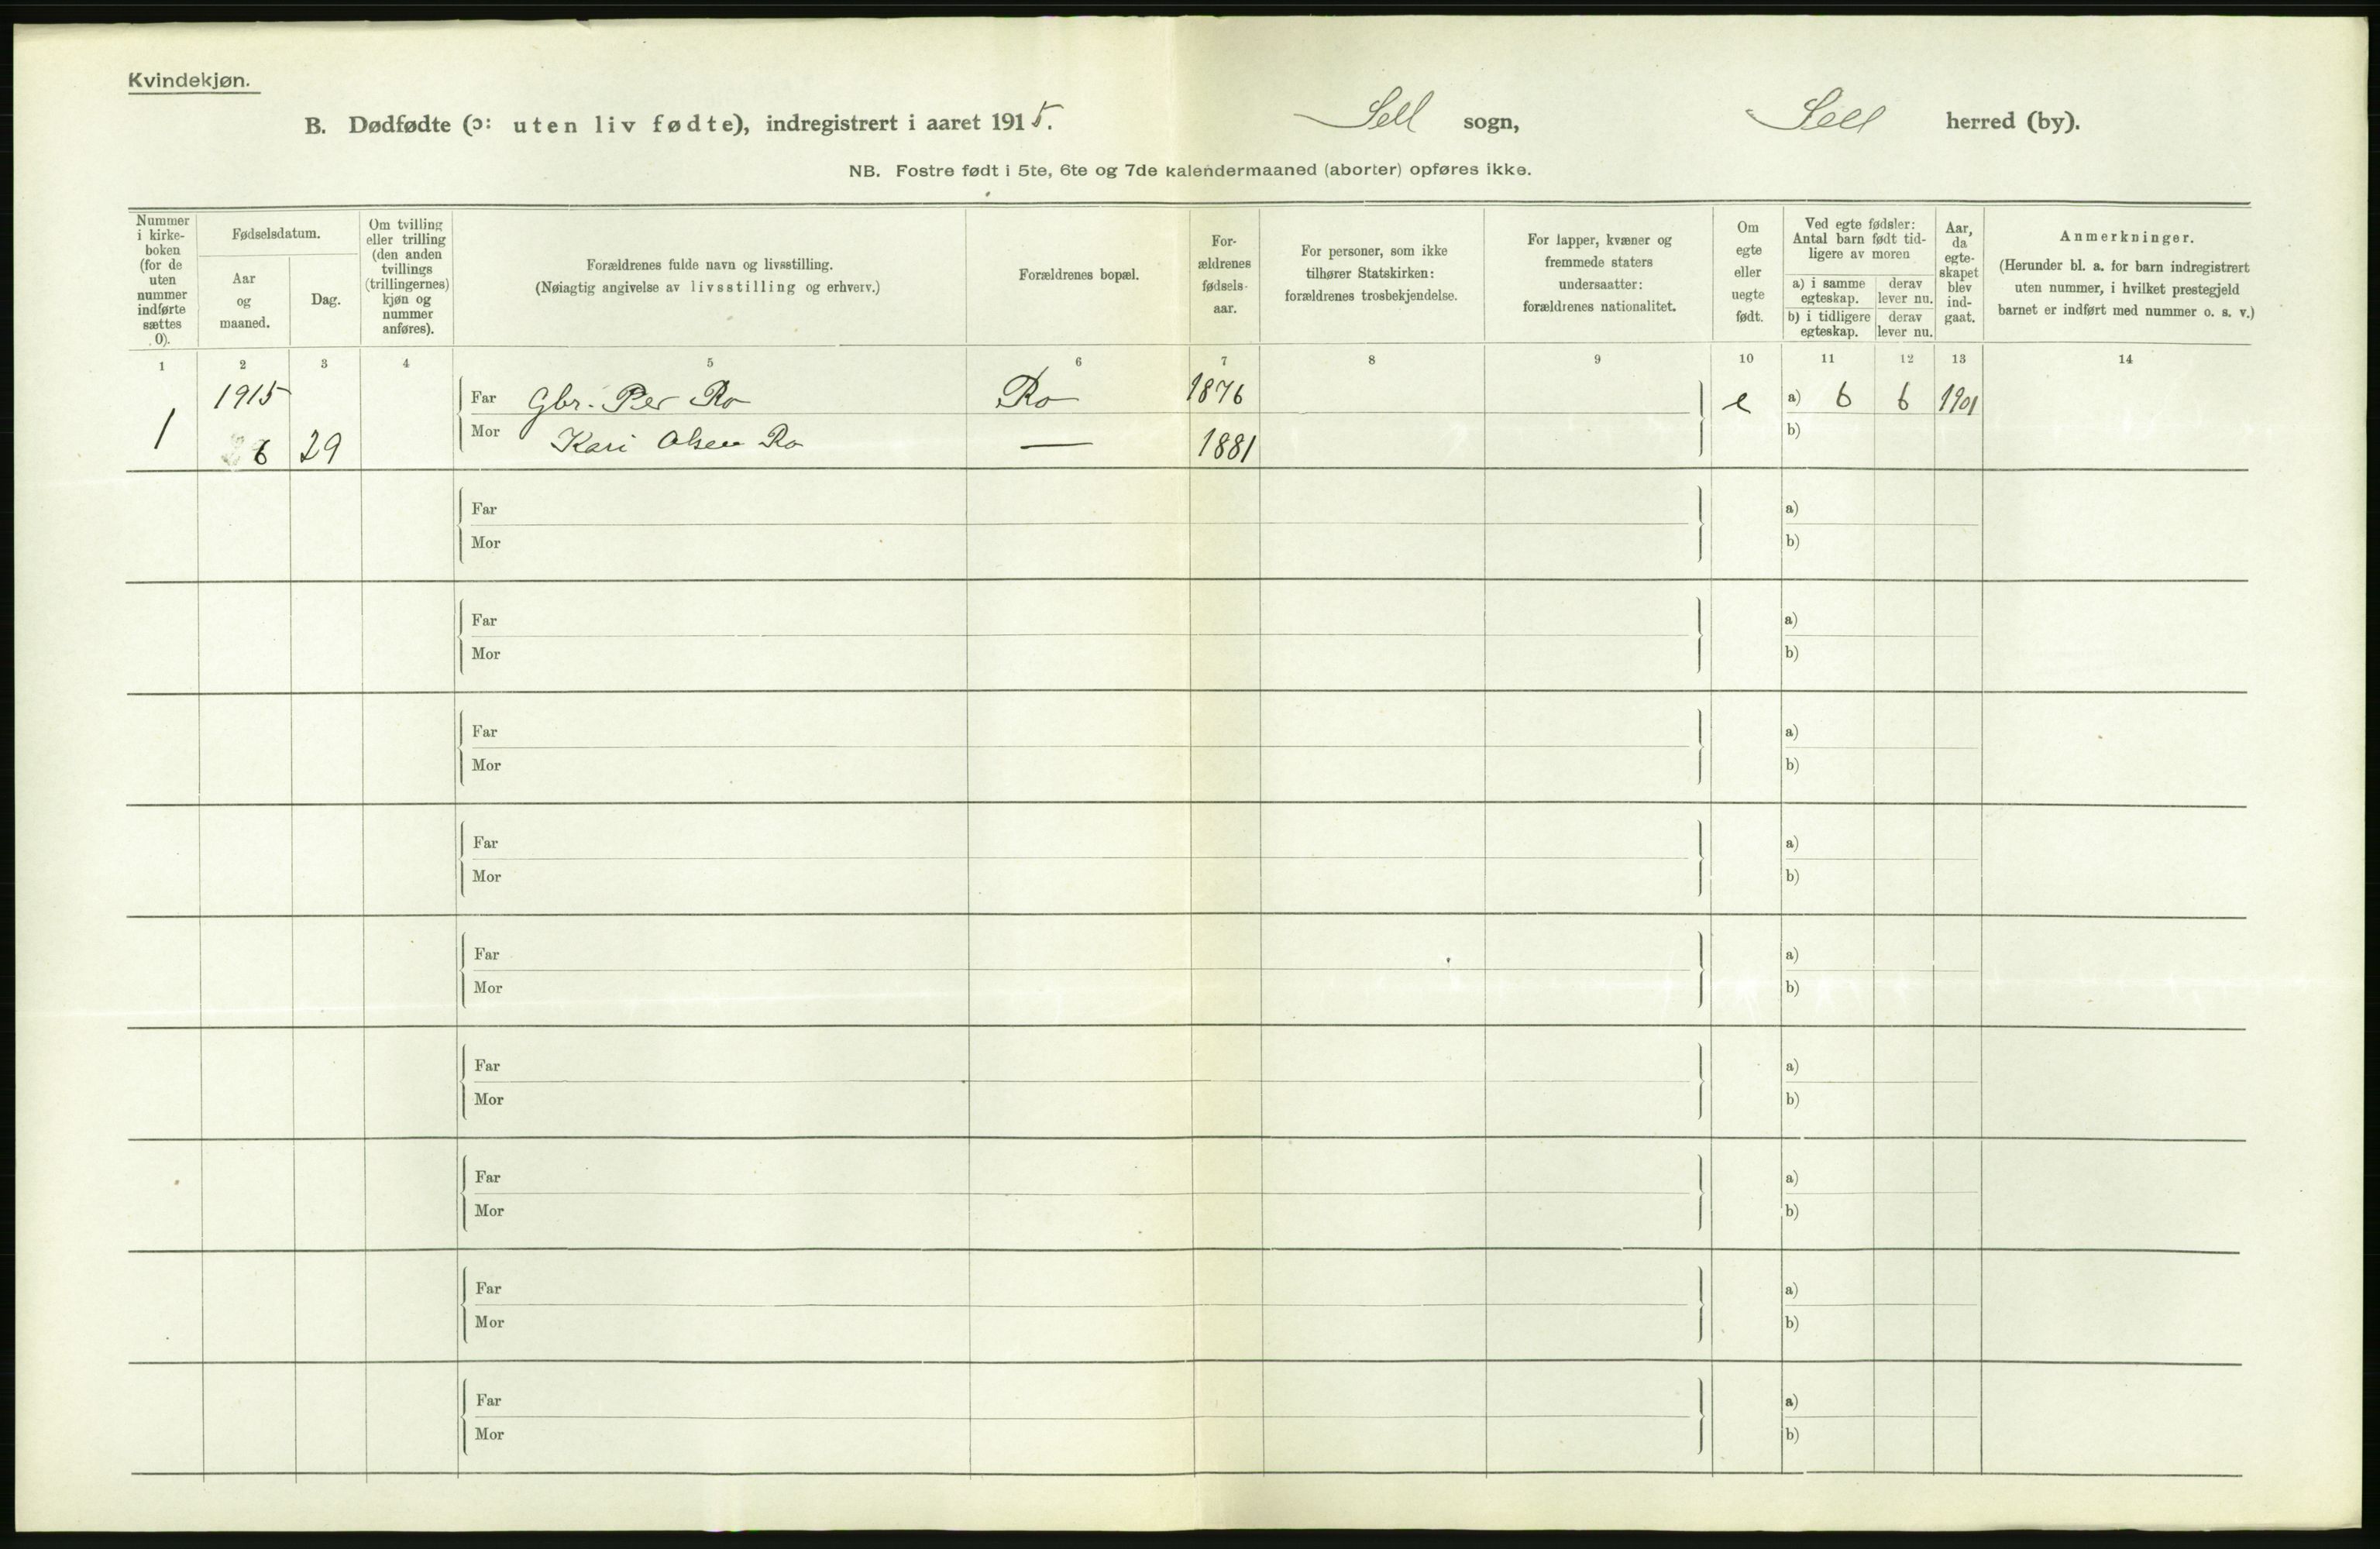 Kvindekjøn.
B. Dødfødte (ɔ: uten liv fødte), indregistrert i aaret 1915. Sell sogn, Sell herred (by).
NB. Fostre født i 5te, 6te og 7de kalendermaaned (aborter) opføres ikke.
Nummer
i kirke-
boken
(for de
uten
nummer
indførte
sættes
0).
Fødselsdatum.
Aar
og
maaned.
Dag.
Om tvilling
eller trilling
(den anden
tvillings
(trillingernes)
kjøn og
nummer
anføres).
Forældrenes fulde navn og livsstilling.
(Nøiagtig angivelse av livsstilling og erhverv.)
Forældrenes bopæl.
For-
ældrenes
fødsels-
aar.
For personer, som ikke
tilhører Statskirken:
forældrenes trosbekjendelse.
For lapper, kvæner og
fremmede staters
undersaatter:
forældrenes nationalitet.
Om
egte
eller
uegte
født.
Ved egte fødsler:
Antal barn født tid-
ligere av moren
a) i samme
egteskap.
derav
lever nu.
b) i tidligere
egteskap.
derav
lever nu.
Aar,
da
egte-
skapet
blev
ind-
gaat.
Anmerkninger.
(Herunder bl. a. for barn indregistrert
uten nummer, i hvilket prestegjeld
barnet er indført med nummer o. s. v.)
1 2 3 4 5 6 7 8 9 10 11 12 13 14
1915 Far Gbr. Per Ro Ro 1876 e a) 6 6 1901
1 6 29 Mor Kari Olsen Ro — 1881 b)
Far a)
Mor b)
Far a)
Mor b)
Far a)
Mor b)
Far a)
Mor b)
Far a)
Mor b)
Far a)
Mor b)
Far a)
Mor b)
Far a)
Mor b)
Far a)
Mor b)